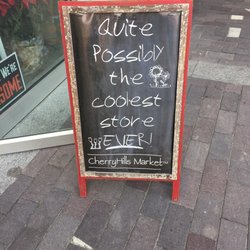 Quite
Possibly
the
coolest
store
!!! EVER!
CherryHills Market
WE'RE
SOME